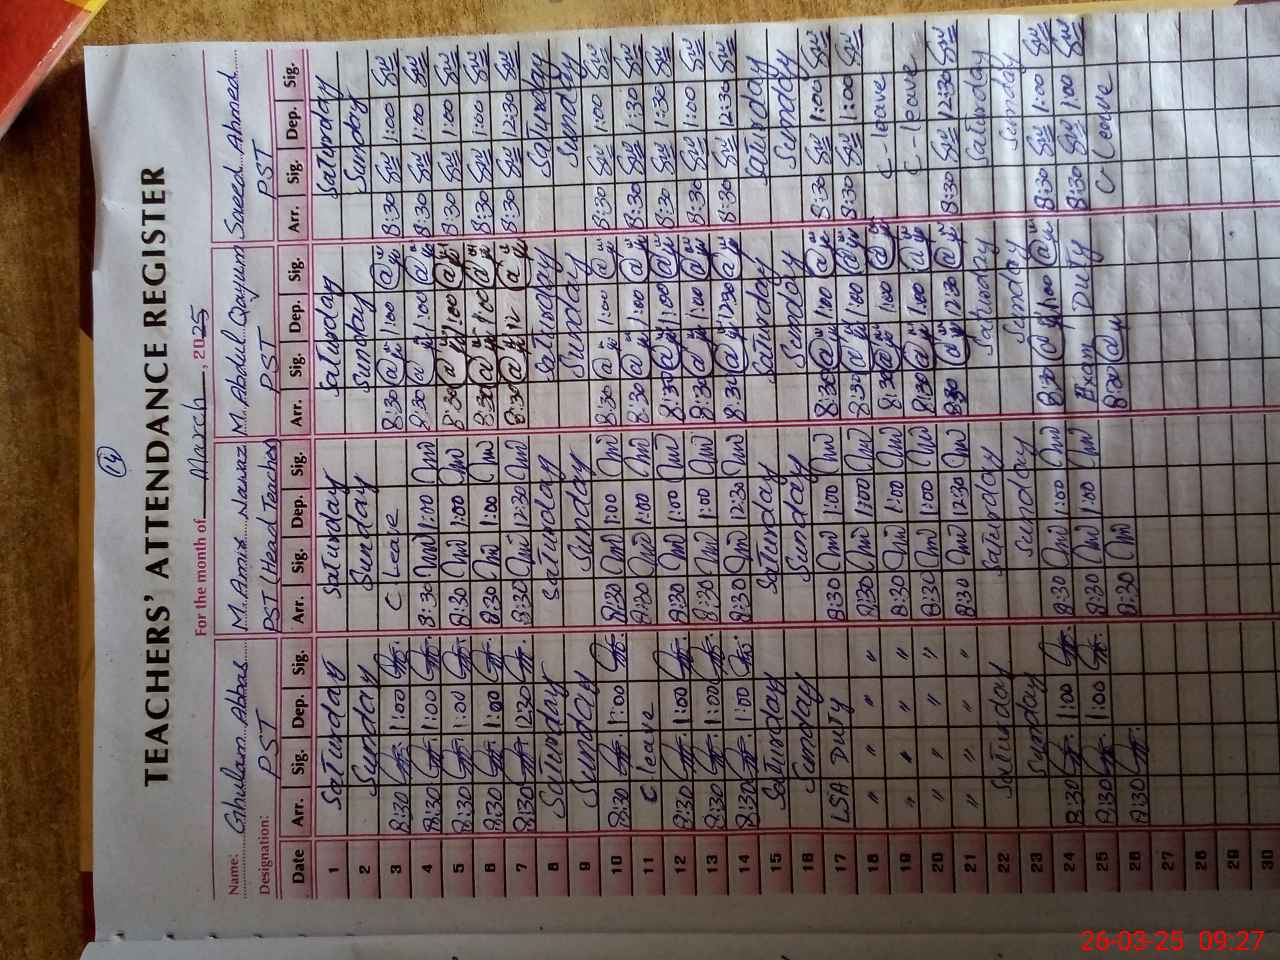 14
TEACHERS' ATTENDANCE REGISTER
For the month of March, 2025
Name: Ghulam Abbas M. Amir Nawaz M. Abdul Qayum Saeed Ahmed
Designation: PST PST (Head Teacher) PST PST
Date Arr. Sig. Dep. Sig. Arr. Sig. Dep. Sig. Arr. Sig. Dep. Sig. Arr. Sig. Dep. Sig.
1 Saturday Saturday Saturday Saturday
2 Sunday Sunday Sunday Sunday
3 8:30 1:00 C Leave 8:30 1:00 8:30 1:00
4 8:30 1:00 8:30 1:00 8:30 1:00 8:30 1:00
5 8:30 1:00 8:30 1:00 8:30 1:00 8:30 1:00
6 8:30 1:00 8:30 1:00 8:30 1:00 8:30 1:00
7 8:30 12:30 8:30 12:30 8:30 12 8:30 12:30
8 Saturday Saturday Saturday Saturday
9 Sunday Sunday Sunday Sunday
10 8:30 1:00 8:30 1:00 8:30 1:00 8:30 1:00
11 C leave 8:30 1:00 8:30 1:00 8:30 1:30
12 8:30 1:00 8:30 1:00 8:30 1:00 8:30 1:30
13 8:30 1:00 8:30 1:00 8:30 1:00 8:30 1:00
14 8:30 1:00 8:30 12:30 8:30 12:30 8:30 12:30
15 Saturday Saturday Saturday Saturday
16 Sunday Sunday Sunday Sunday
17 LSA Duty 8:30 1:00 8:30 1:00 8:30 1:00
18 " " " " 8:30 1:00 8:30 1:00 8:30 1:00
19 " " " " 8:30 1:00 8:30 1:00 C-leave
20 " " " " 8:30 1:00 8:30 1:00 C-leave
21 " " " " 8:30 12:30 8:30 12:30 8:30 12:30
22 Saturday Saturday Saturday Saturday
23 Sunday Sunday Sunday Sunday
24 8:30 1:00 8:30 1:00 8:30 1:00 8:30 1:00
25 8:30 1:00 8:30 1:00 Exam Duty 8:30 1:00
26 8:30 8:30 8:30 C-Leave
27
28
29
30
26-03-25 09:27